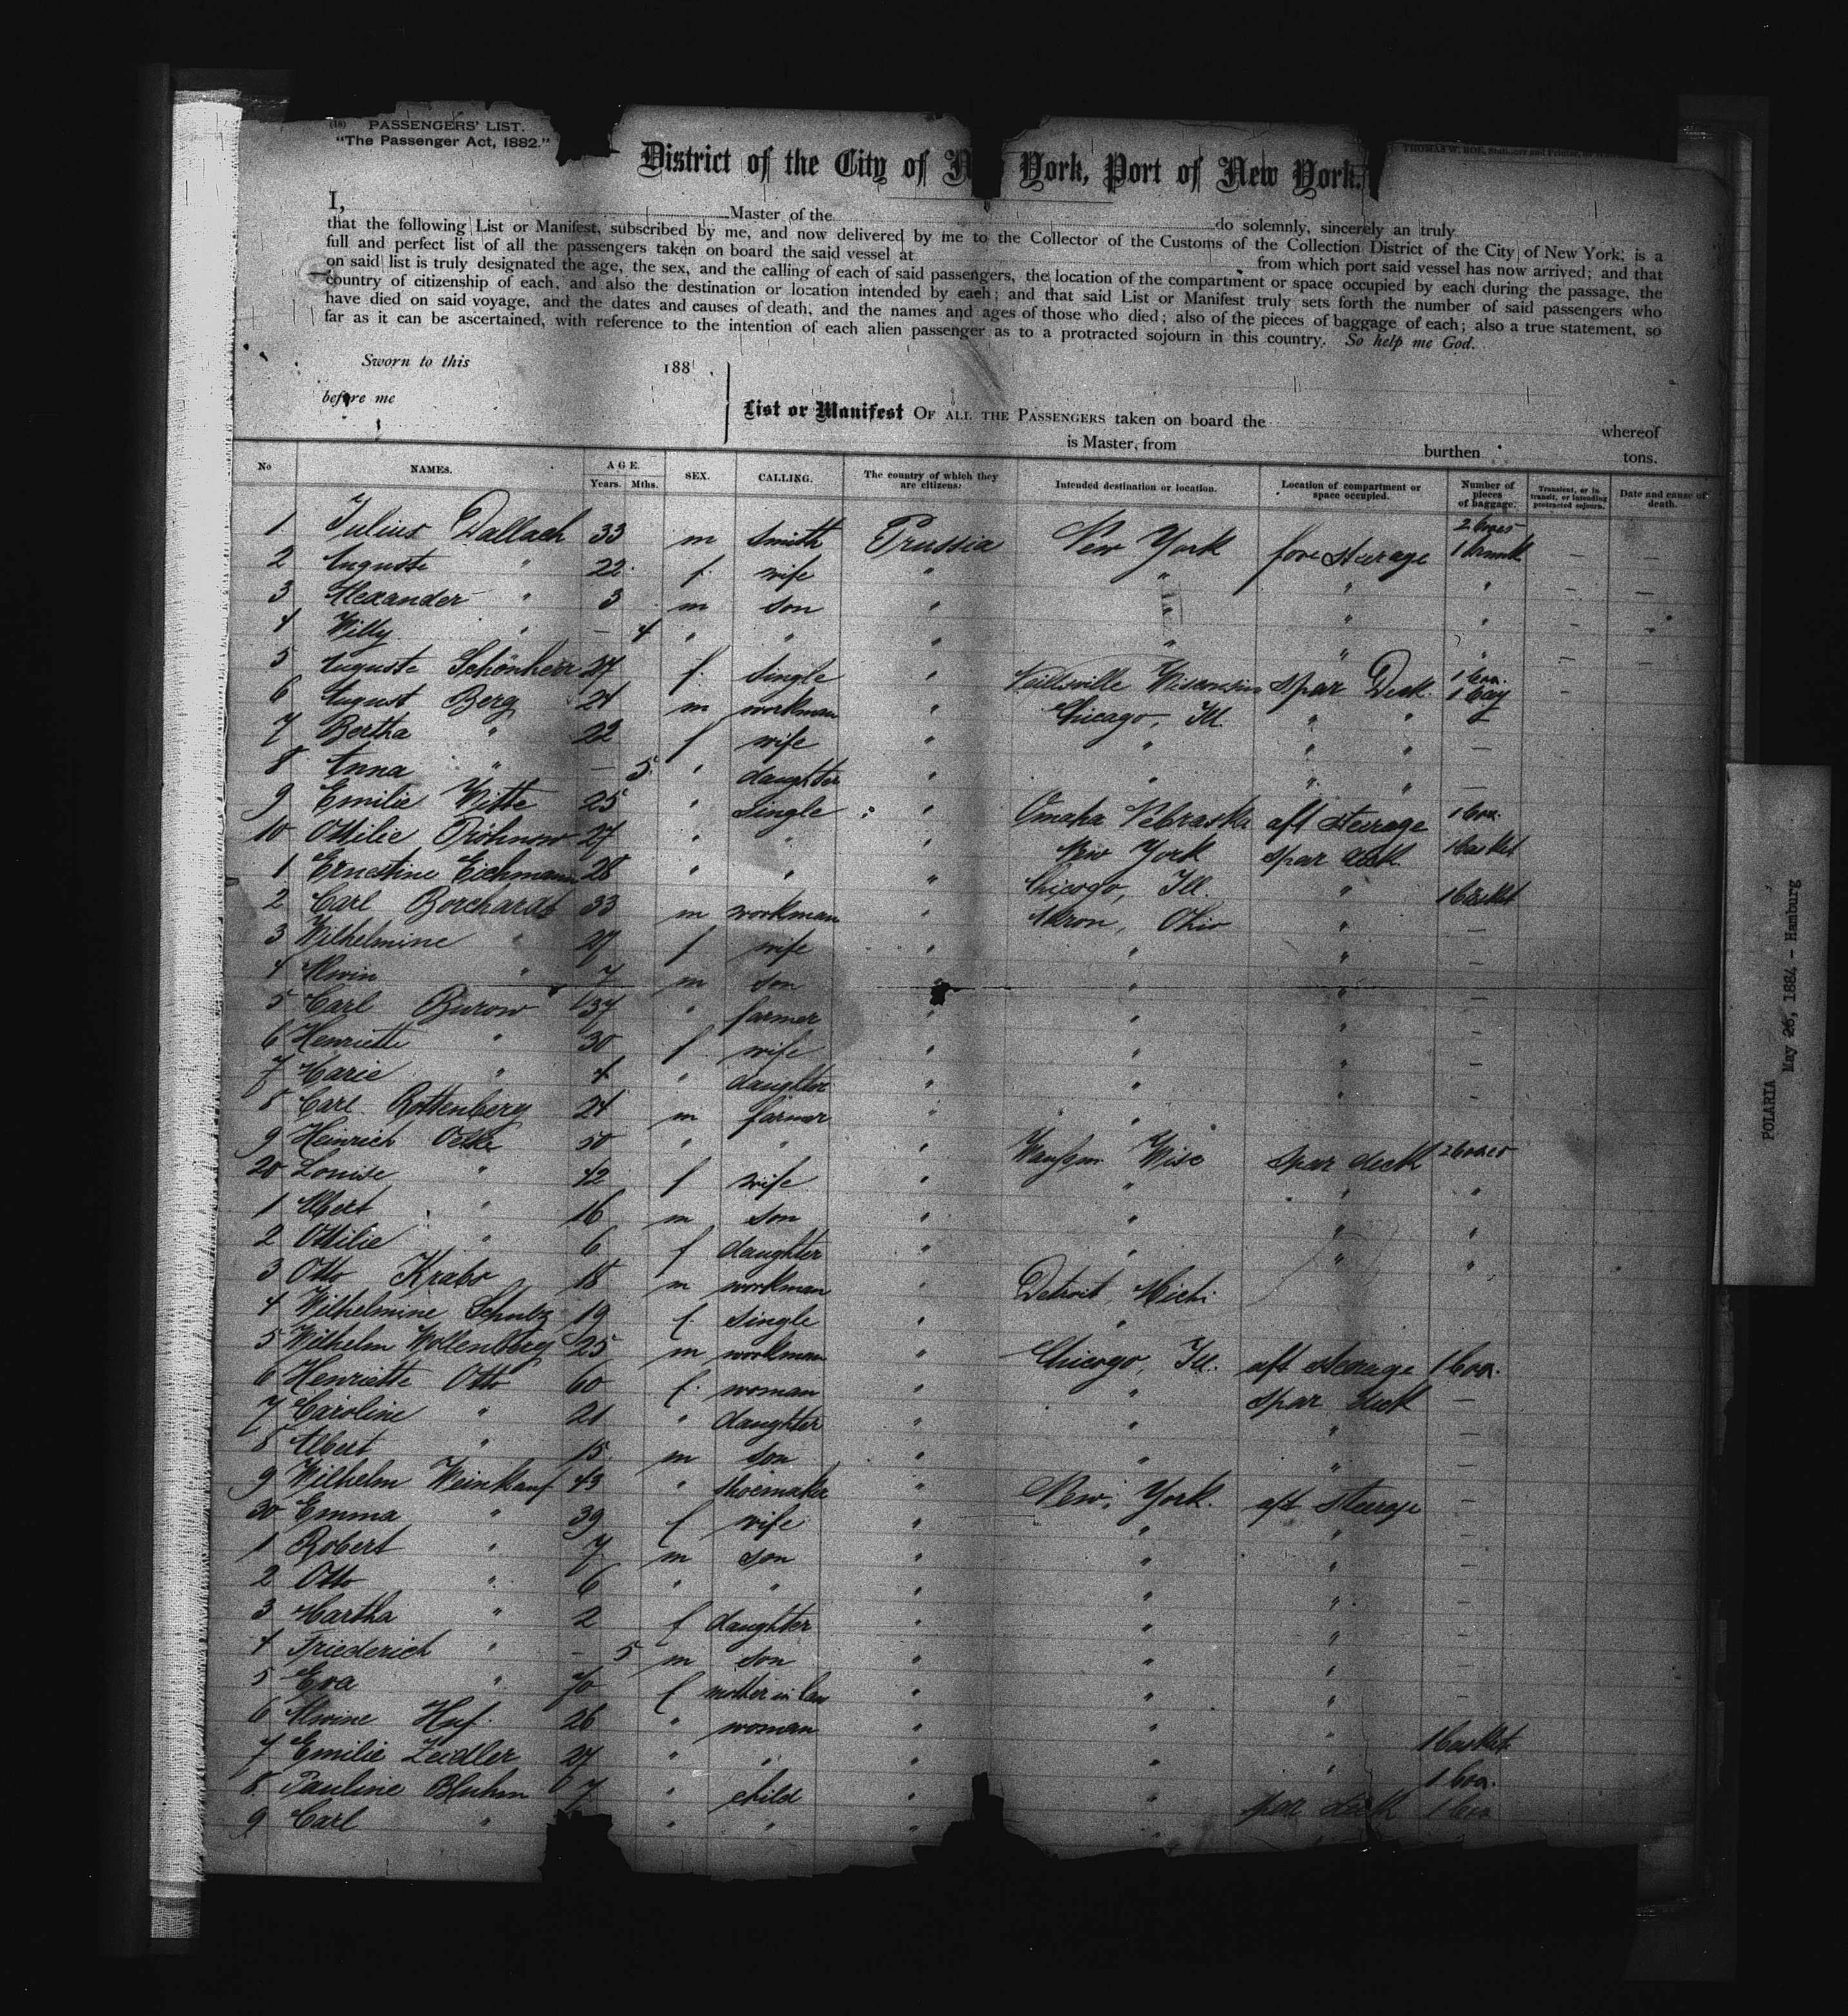 (18) PASSENGERS' LIST.
"The Passenger Act, 1882."
THOMAS W. ROE, Stationer and Printer
District of the City of N York, Port of New York.
I, Master of the do solemnly, sincerely an truly
that the following List or Manifest, subscribed by me, and now delivered by me to the Collector of the Customs of the Collection District of the City of New York; is a
full and perfect list of all the passengers taken on board the said vessel at from which port said vessel has now arrived; and that
on said list is truly designated the age, the sex, and the calling of each of said passengers, the location of the compartment or space occupied by each during the passage, the
country of citizenship of each, and also the destination or location intended by each; and that said List or Manifest truly sets forth the number of said passengers who
have died on said voyage, and the dates and causes of death, and the names and ages of those who died; also of the pieces of baggage of each; also a true statement, so
far as it can be ascertained, with reference to the intention of each alien passenger as to a protracted sojourn in this country. So help me God.
Sworn to this 188
before me
List or Manifest OF ALL THE PASSENGERS taken on board the whereof
is Master, from burthen tons.
No NAMES. AGE. Years. Mths. SEX. CALLING. The country of which they are citizens. Intended destination or location. Location of compartment or space occupied. Number of pieces of baggage. Transient, or in transit, or intending protracted sojourn. Date and cause of death.
1 Julius Dallach 33 m smith Prussia New York fore steerage 2 boxes 1 trunk — —
2 Auguste " 22 f. wife " " " " — —
3 Alexander " 3 m son " " " " —
4 Willy " — 4 " " " " " " — —
5 Auguste Schönherr 27 f. single " Neillsville Wisconsin spar Deck 1 box. 1 bag —
6 August Berg 24 m workman " Chicago, Ill. " " —
7 Bertha " 22 f wife " " " " —
8 Anna " — 5 " daughter " " " " —
9 Emilie Witte 25 " single " Omaha Nebraska aft steerage 1 box.
10 Ottilie Pröhnow 27 " " " New York spar deck 1 basket
1 Ernestine Eichmann 28 " " " Chicago, Ill. " 1 basket
2 Carl Borchardt 33 m workman " Akron, Ohio " —
3 Wilhelmine " 27 f wife " " " —
4 Alwin " 7 m son " " " —
5 Carl Burow 37 " farmer " " " —
6 Henriette " 30 f wife " " " —
7 Marie " 4 " daughter " " " —
8 Carl Rottenberg 24 m farmer " " " —
9 Heinrich Oelke 50 " " " Wise spar deck 2 boxes
20 Louise " 42 f wife " " " "
1 Albert " 16 m son " " " "
2 Ottilie " 6 f daughter " " " "
3 Otto Krabo 18 m workman " Detroit Michi
4 Wilhelmine Schultz 19 f. single " "
5 Wilhelm Wollenberg 25 m workman " Chicago, Ill. aft steerage 1 box.
6 Henriette Otto 60 f. woman " " spar deck —
7 Caroline " 21 " daughter " " " —
8 Albert " 15 m son " " " —
9 Wilhelm Weinkauf 43 " shoemaker " New York. aft steerage —
30 Emma " 39 f wife " " " —
1 Robert " 7 m son " " " —
2 Otto " 6 " " " " " —
3 Martha " 2 f daughter " " " —
4 Friederich " — 5 m son " " " —
5 Eva " 70 f mother in law " " " —
6 Alwine Huf 26 " woman " " " 1 basket
7 Emilie Zeidler 27 " " " " " 1 box.
8 Pauline Bluhm 7 " child " " spar deck 1 box
9 Carl " " " " "
POLARIA
May 26, 1884 - Hamburg